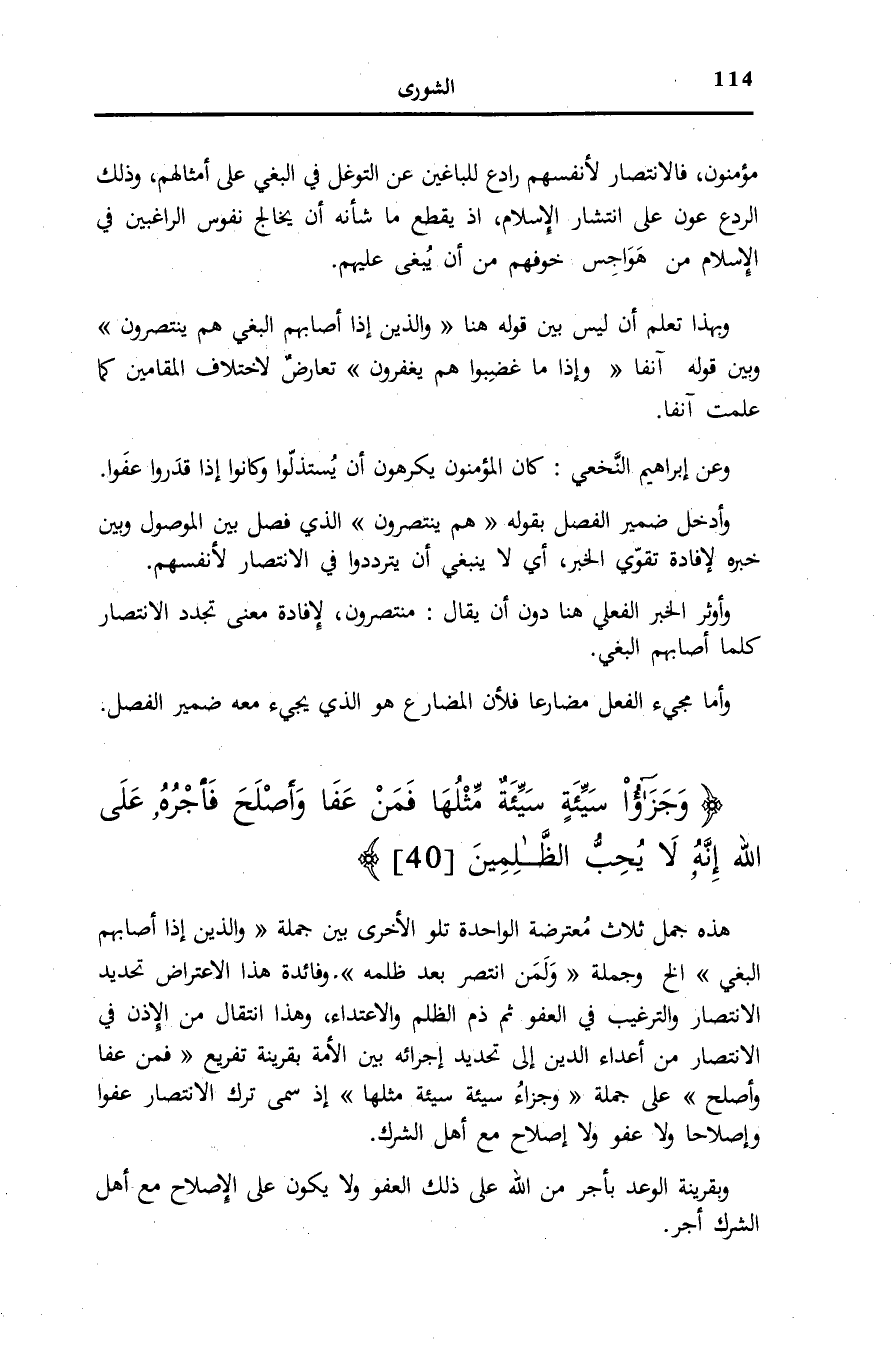 114
الشورى
مؤمنون، فالانتصار لأنفسهم رادع للباغين عن التوغل في البغي على أمثالهم، وذلك
الردع عون على انتشار الإسلام، اذ يقطع ما شأنه أن يخالج نفوس الراغبين في
الإسلام من هَوَاجِس خوفهم من أن يُبغى عليهم.
وبهذا تعلم أن ليس بين قوله هنا « والذين إذا أصابهم البغي هم ينتصرون »
وبين قوله آنفا « وإذا ما غضِبوا هم يغفرون » تعارضٌ لاختلاف المقامين كما
علمت آنفا.
وعن إبراهيم النَّخعي : كان المؤمنون يكرهون أن يُستذلّوا وكانوا إذا قدَروا عفَوا.
وأدخل ضمير الفصل بقوله « هم ينتصرون » الذي فصل بين الموصول وبين
خبره لإفادة تقوّي الخبر، أي لا ينبغي أن يترددوا في الانتصار لأنفسهم.
وأوثر الخبر الفعلي هنا دون أن يقال : منتصرون، لإفادة معنى تجدد الانتصار
كلما أصابهم البغي.
وأما مجيء الفعل مضارعا فلأن المضارع هو الذي يجيء معه ضمير الفصل.
﴿ وَجَزَٰٓؤُاْ سَيِّئَةٍ سَيِّئَةٌ مِّثْلُهَا فَمَنْ عَفَا وَأَصْلَحَ فَأَجْرُهُۥ عَلَى
الله إِنَّهُۥ لَا يُحِبُّ الظَّـٰلِمِينَ [40] ﴾
هذه جمل ثلاث مُعترضة الواحدة تلو الأخرى بين جملة « والذين إذا أصابهم
البغي » الخ وجملة « وَلَمَن انتصر بعد ظلمه ». وفائدة هذا الاعتراض تحديد
الانتصار والترغيب في العفو ثم ذم الظلم والاعتداء، وهذا انتقال من الإذن في
الانتصار من أعداء الدين إلى تحديد إجرائه بين الأمة بقرينة تفريع « فمن عفا
وأصلح » على جملة « وجزاءُ سيئة سيئة مثلها » إذ سمى ترك الانتصار عفوا
وإصلاحا ولا عفو ولا إصلاح مع أهل الشرك.
وبقرينة الوعد بأجر من الله على ذلك العفو ولا يكون على الإصلاح مع أهل
الشرك أجر.